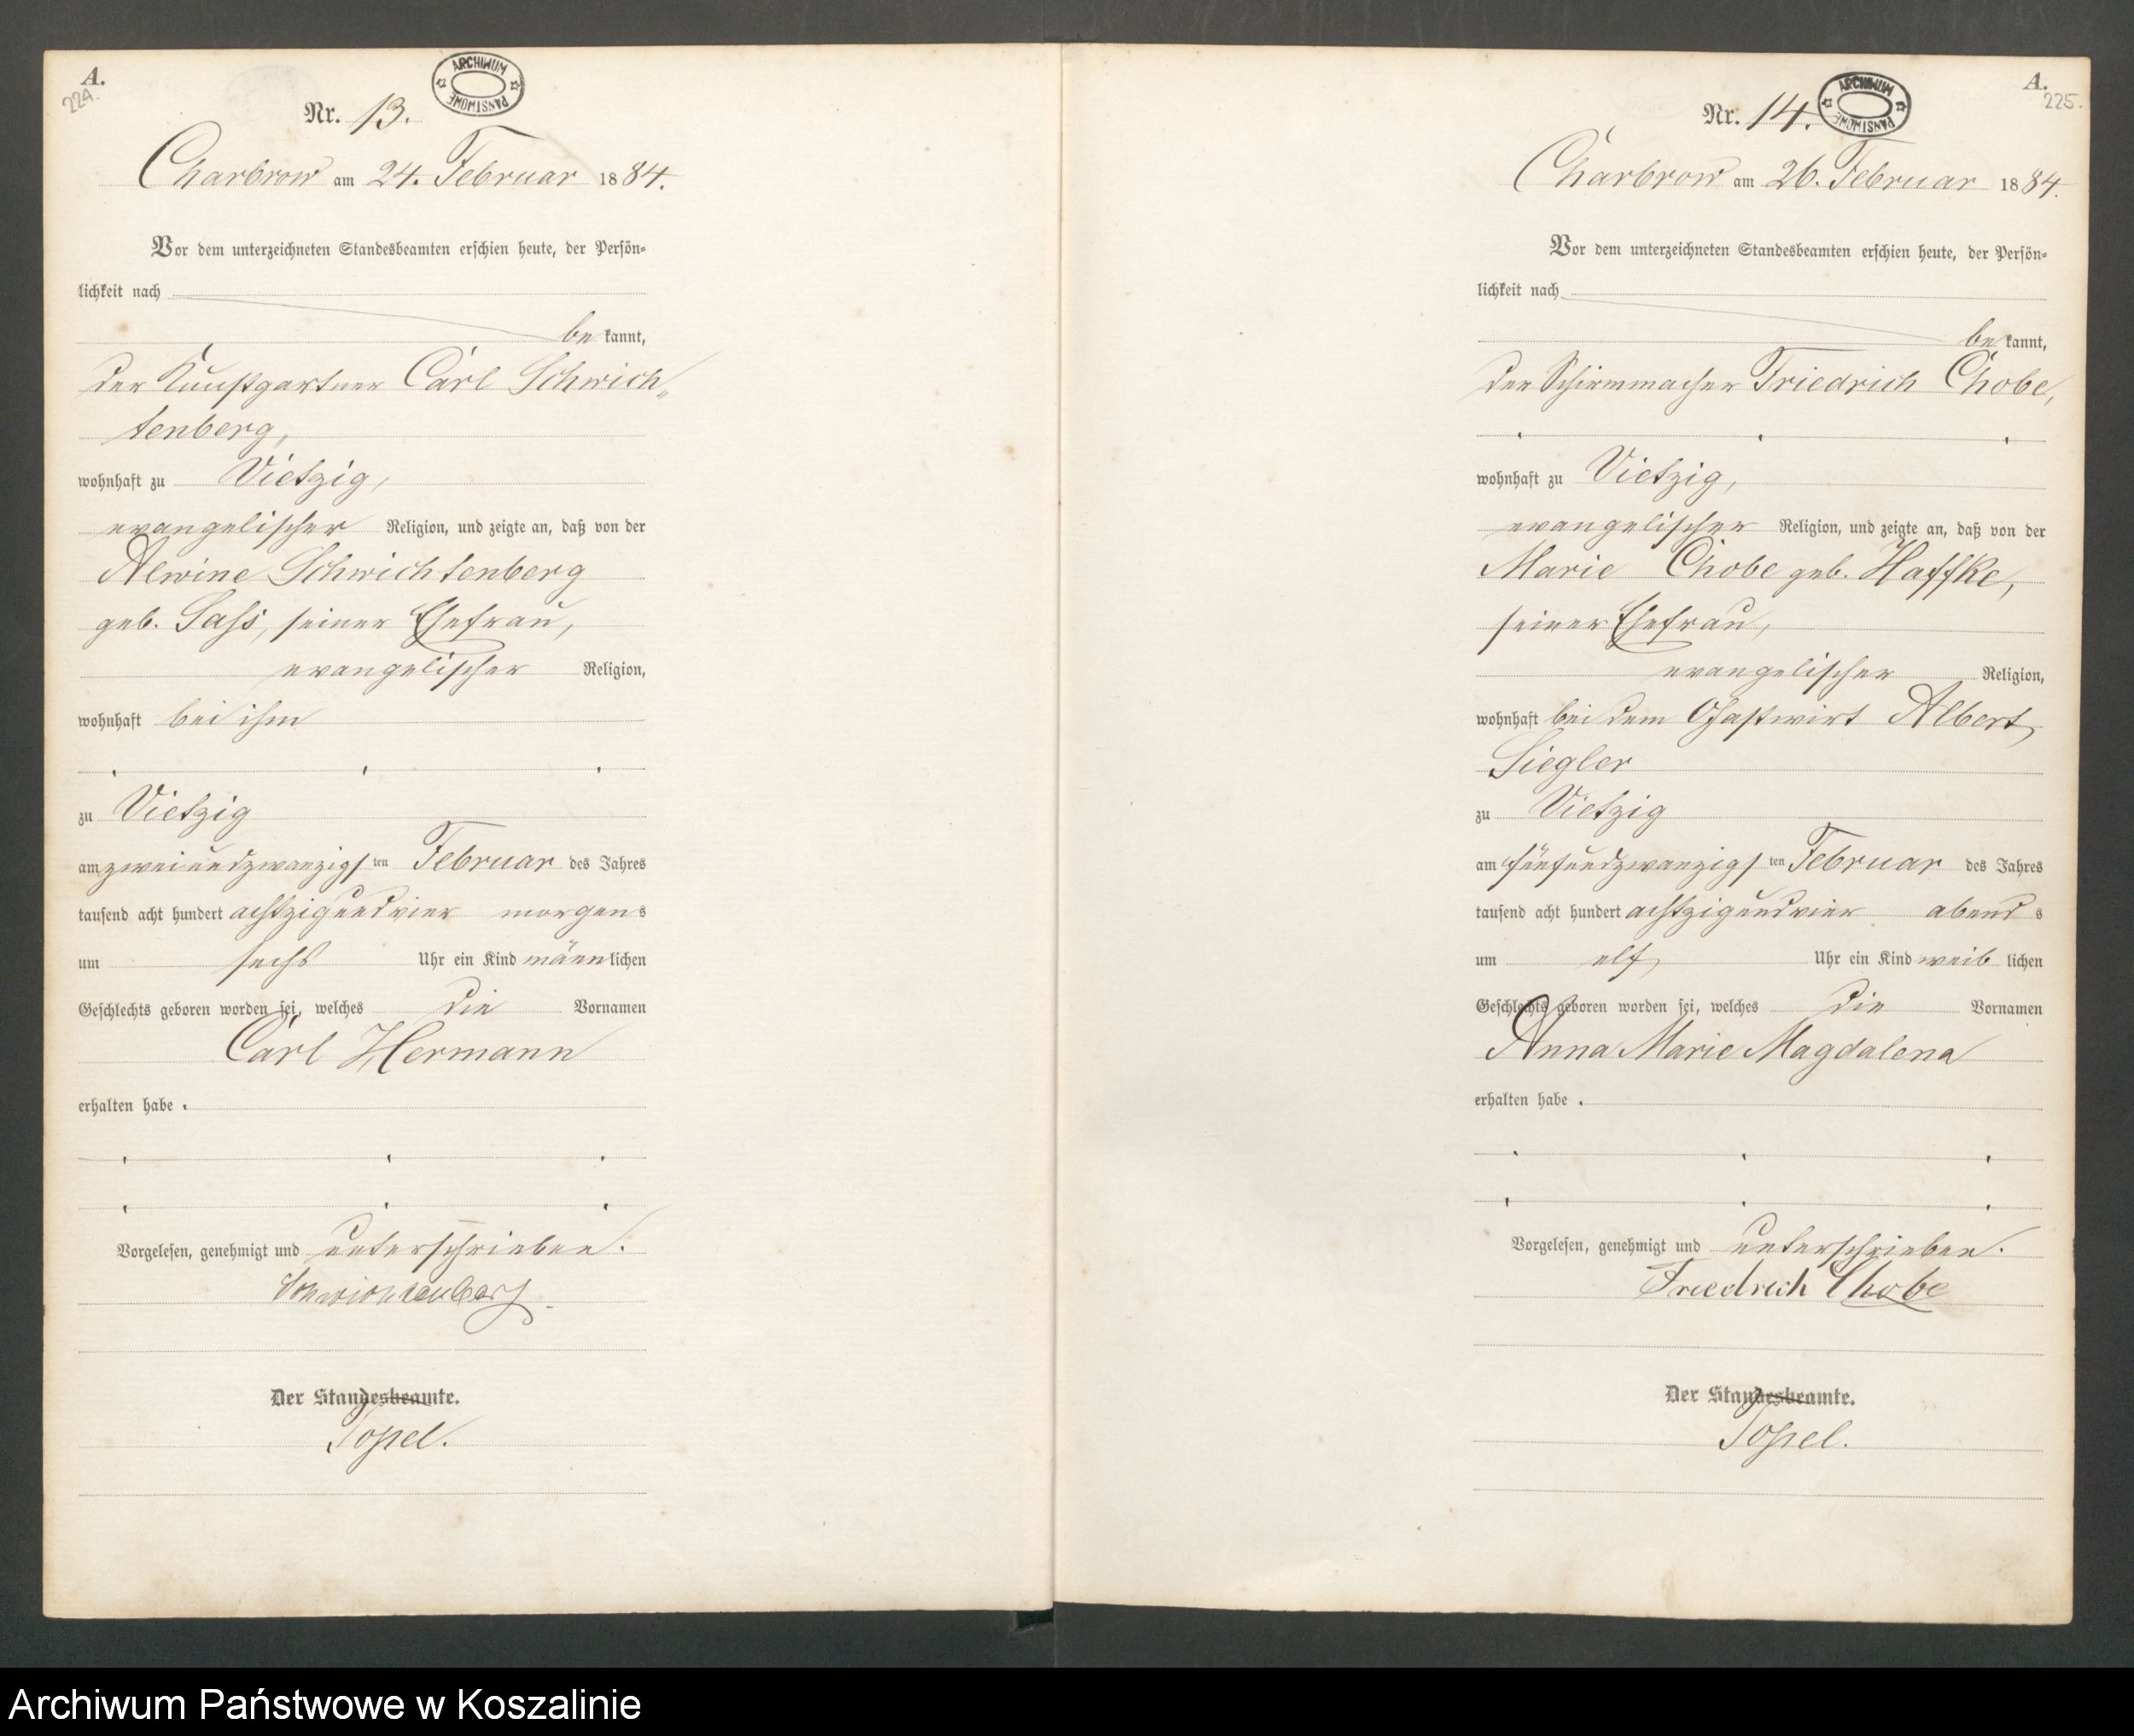 A.
224.
ARCHIWUM PAŃSTWOWE
Nr. 13.
Charbrow am 24. Februar 1884.
Vor dem unterzeichneten Standesbeamten erschien heute, der Persön-
lichkeit nach
be kannt,
der Kunstgartner Carl Schwich-
tenberg,
wohnhaft zu Vietzig,
evangelischer Religion, und zeigte an, daß von der
Alwine Schwichtenberg
geb. Sass, seiner Ehefrau,
evangelischer Religion,
wohnhaft bei ihm
zu Vietzig
am zweiundzwanzigs ten Februar des Jahres
tausend acht hundert achtzig und vier morgens
um sechs Uhr ein Kind männlichen
Geschlechts geboren worden sei, welches die Vornamen
Carl Hermann
erhalten habe.
Vorgelesen, genehmigt und unterschrieben.
Schwichtenberg
Der Standesbeamte.
Topel.
A.
225.
ARCHIWUM PAŃSTWOWE
Nr. 14.
Charbrow am 26. Februar 1884.
Vor dem unterzeichneten Standesbeamten erschien heute, der Persön-
lichkeit nach
be kannt,
der Schirmmacher Friedrich Chobe,
wohnhaft zu Vietzig,
evangelischer Religion, und zeigte an, daß von der
Marie Chobe geb. Haffke,
seiner Ehefrau,
evangelischer Religion,
wohnhaft bei dem Gastwirt Albert
Siegler
zu Vietzig
am fünfundzwanzigs ten Februar des Jahres
tausend acht hundert achtzig und vier abends
um elf Uhr ein Kind weiblichen
Geschlechts geboren worden sei, welches die Vornamen
Anna Marie Magdalena
erhalten habe.
Vorgelesen, genehmigt und unterschrieben.
Friedrich Chobe
Der Standesbeamte.
Topel.
Archiwum Państwowe w Koszalinie